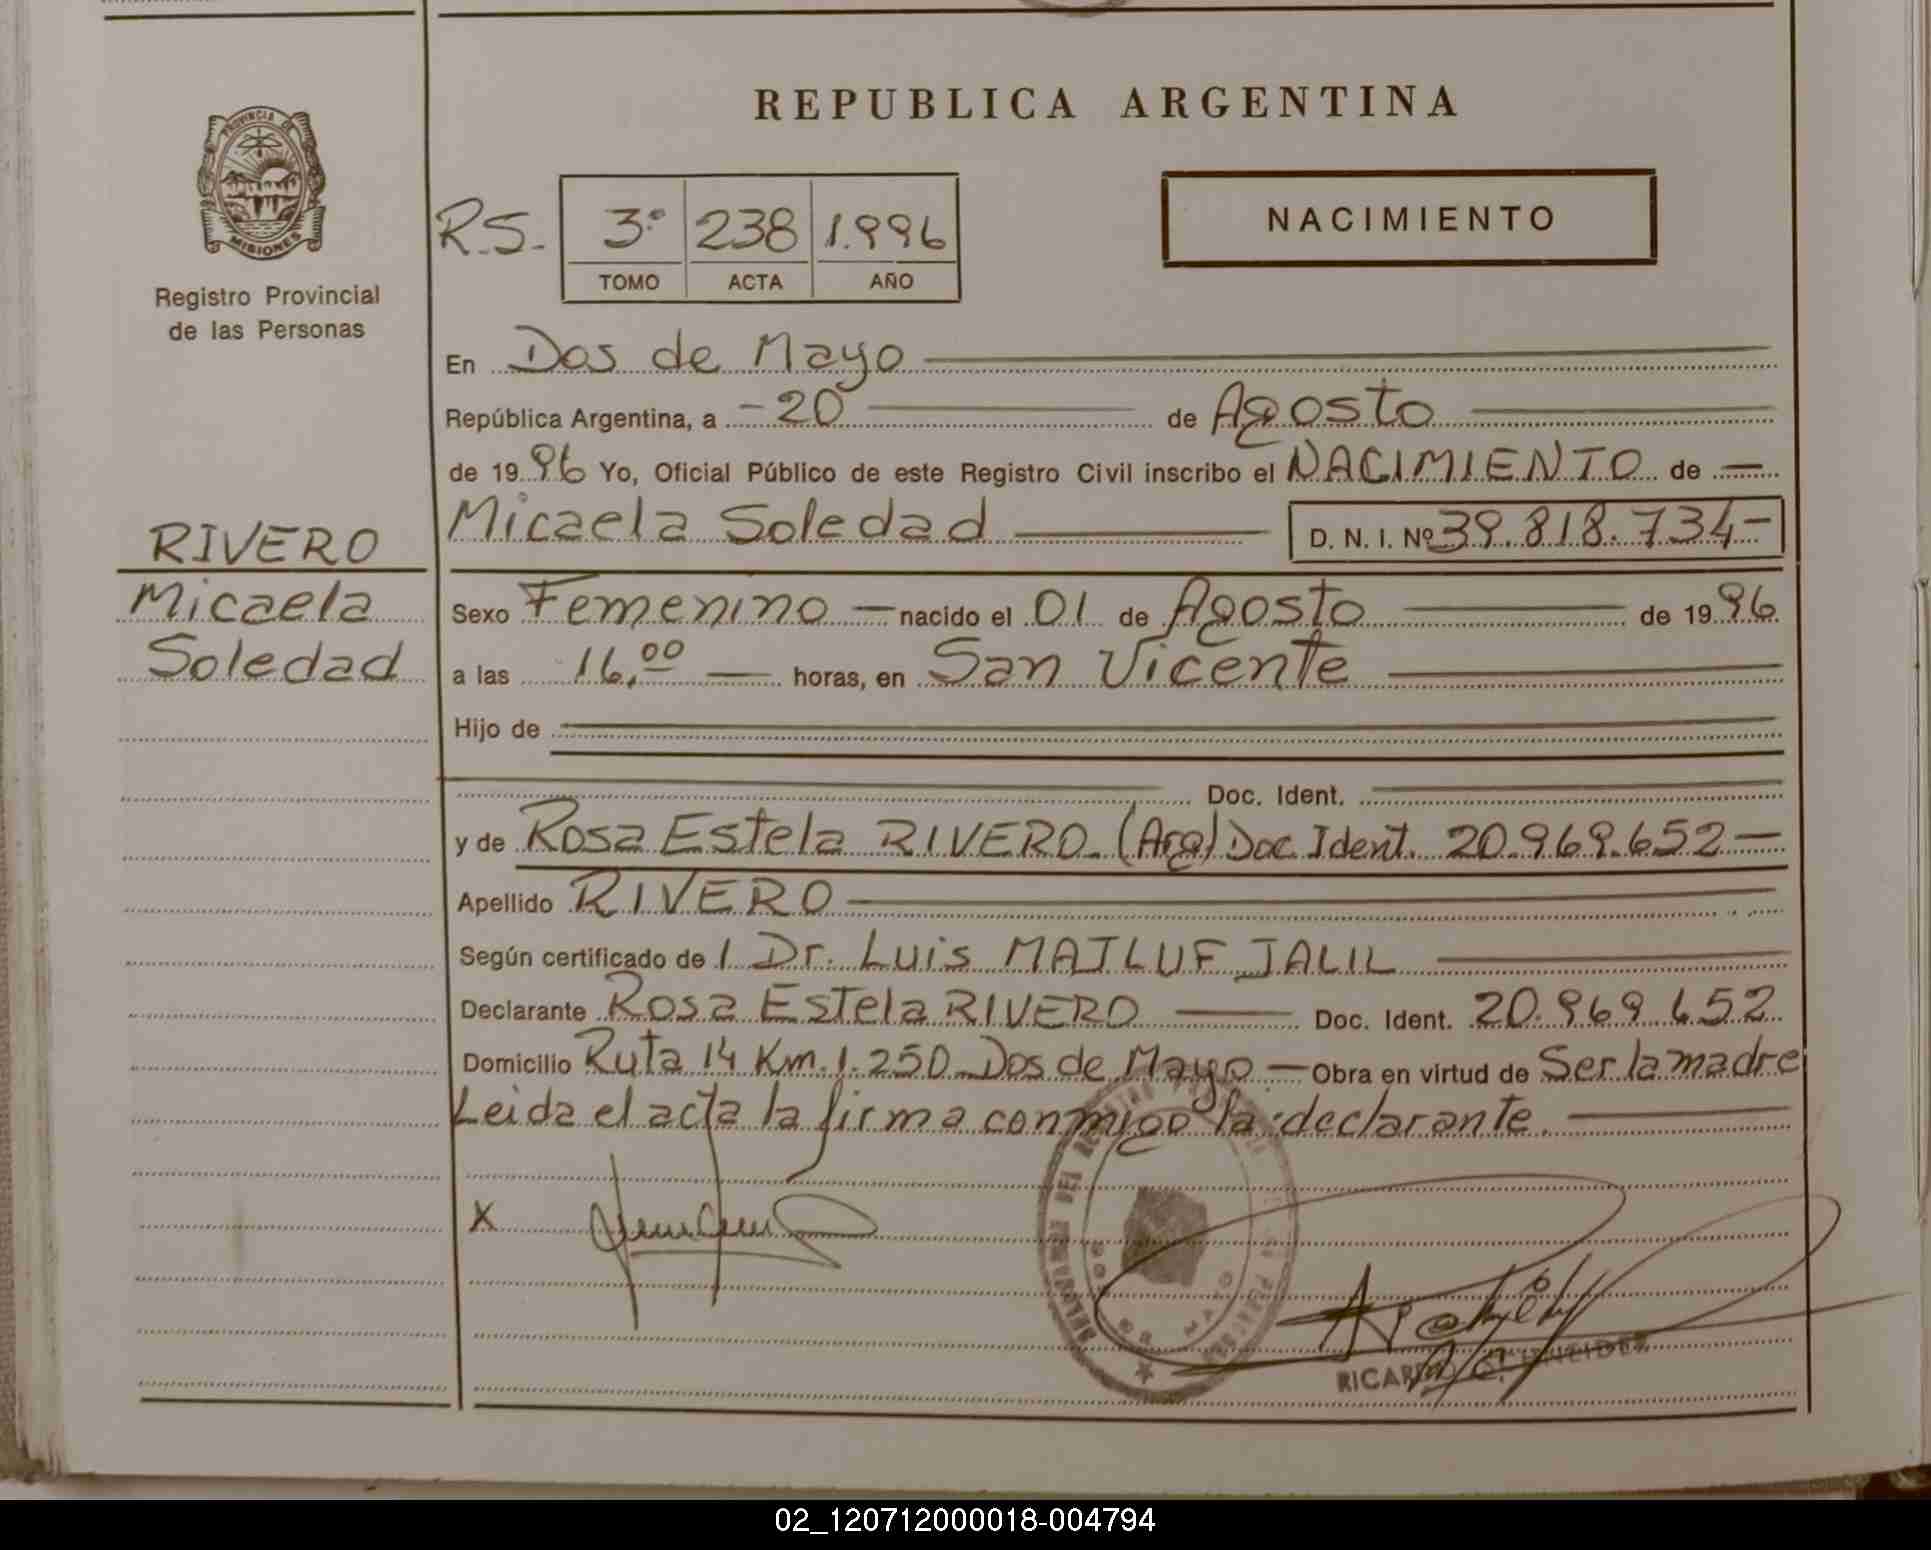 REPUBLICA ARGENTINA
PROVINCIA DE
MISIONES
Registro Provincial
de las Personas
R.S. 3º 238 1.996
TOMO ACTA AÑO
NACIMIENTO
En Dos de Mayo
República Argentina, a -20 de Agosto
de 1996 Yo, Oficial Público de este Registro Civil inscribo el NACIMIENTO de
RIVERO
Micaela
Soledad
Micaela Soledad D. N. I. Nº 39.818.734-
Sexo Femenino nacido el 01 de Agosto de 1996.
a las 16,00 horas, en San Vicente
Hijo de
Doc. Ident.
y de Rosa Estela RIVERO. (Arg) Doc. Ident. 20.969.652
Apellido RIVERO
Según certificado de / Dr. Luis MAJLUF JALIL
Declarante Rosa Estela RIVERO Doc. Ident. 20.969.652
Domicilio Ruta 14 Km. 1.250 Dos de Mayo. Obra en virtud de Ser la madre
Leida el acta la firma conmigo la declarante.
X
DOS DE MAYO
RICARDO SCHNEIDER
02_120712000018-004794